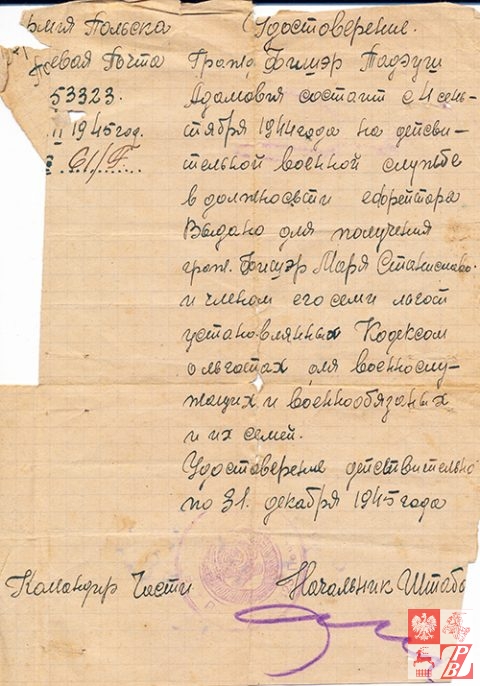 рмия Польска
Полевая Почта
53323.
III 1945 год.
61/F.
Удостоверение.
Гражд. Фишэр Тадэуш
Адамович состаит с 4 сен-
тября 1944 года на дейсви-
тельной военной службе
в должносьти ефрейтора
Выдано для получения
граж. Фишэр Маря Станиславо.
и членом его семи льгот
установлянных Кодексом
о льготах для военнослу-
жащих и военнообязаных
и их семей.
Удостоверение действительно
по 31. декабря 1945 года
Командир Части
Начальник Штаба
PBŁ